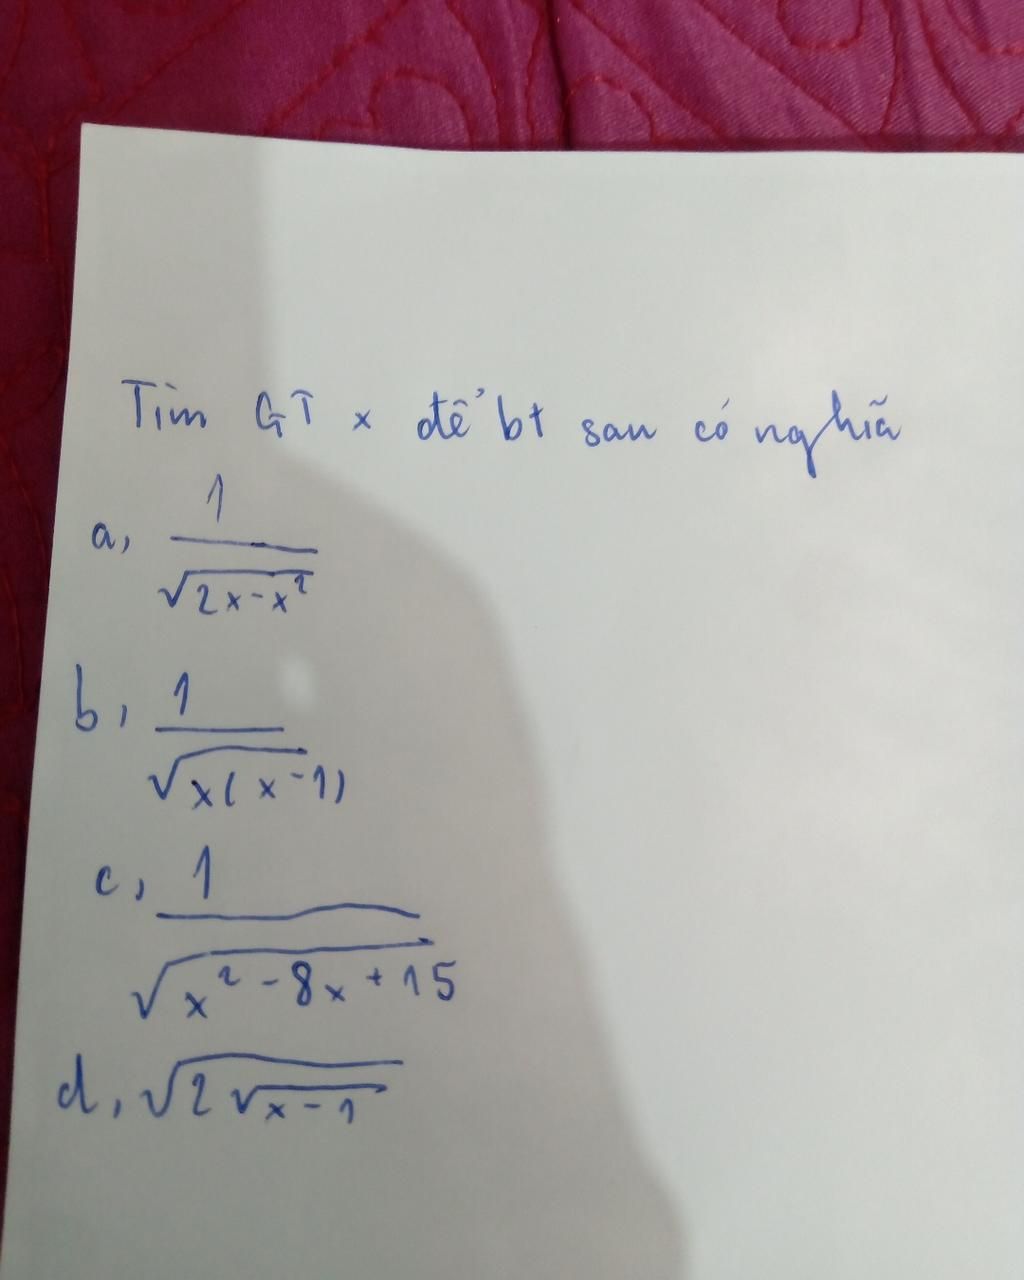 Tìm GT x để bt sau có nghĩa
a, 1
√2x-x²
b, 1
√x(x-1)
c, 1
√x²-8x+15
d, √2√x-1